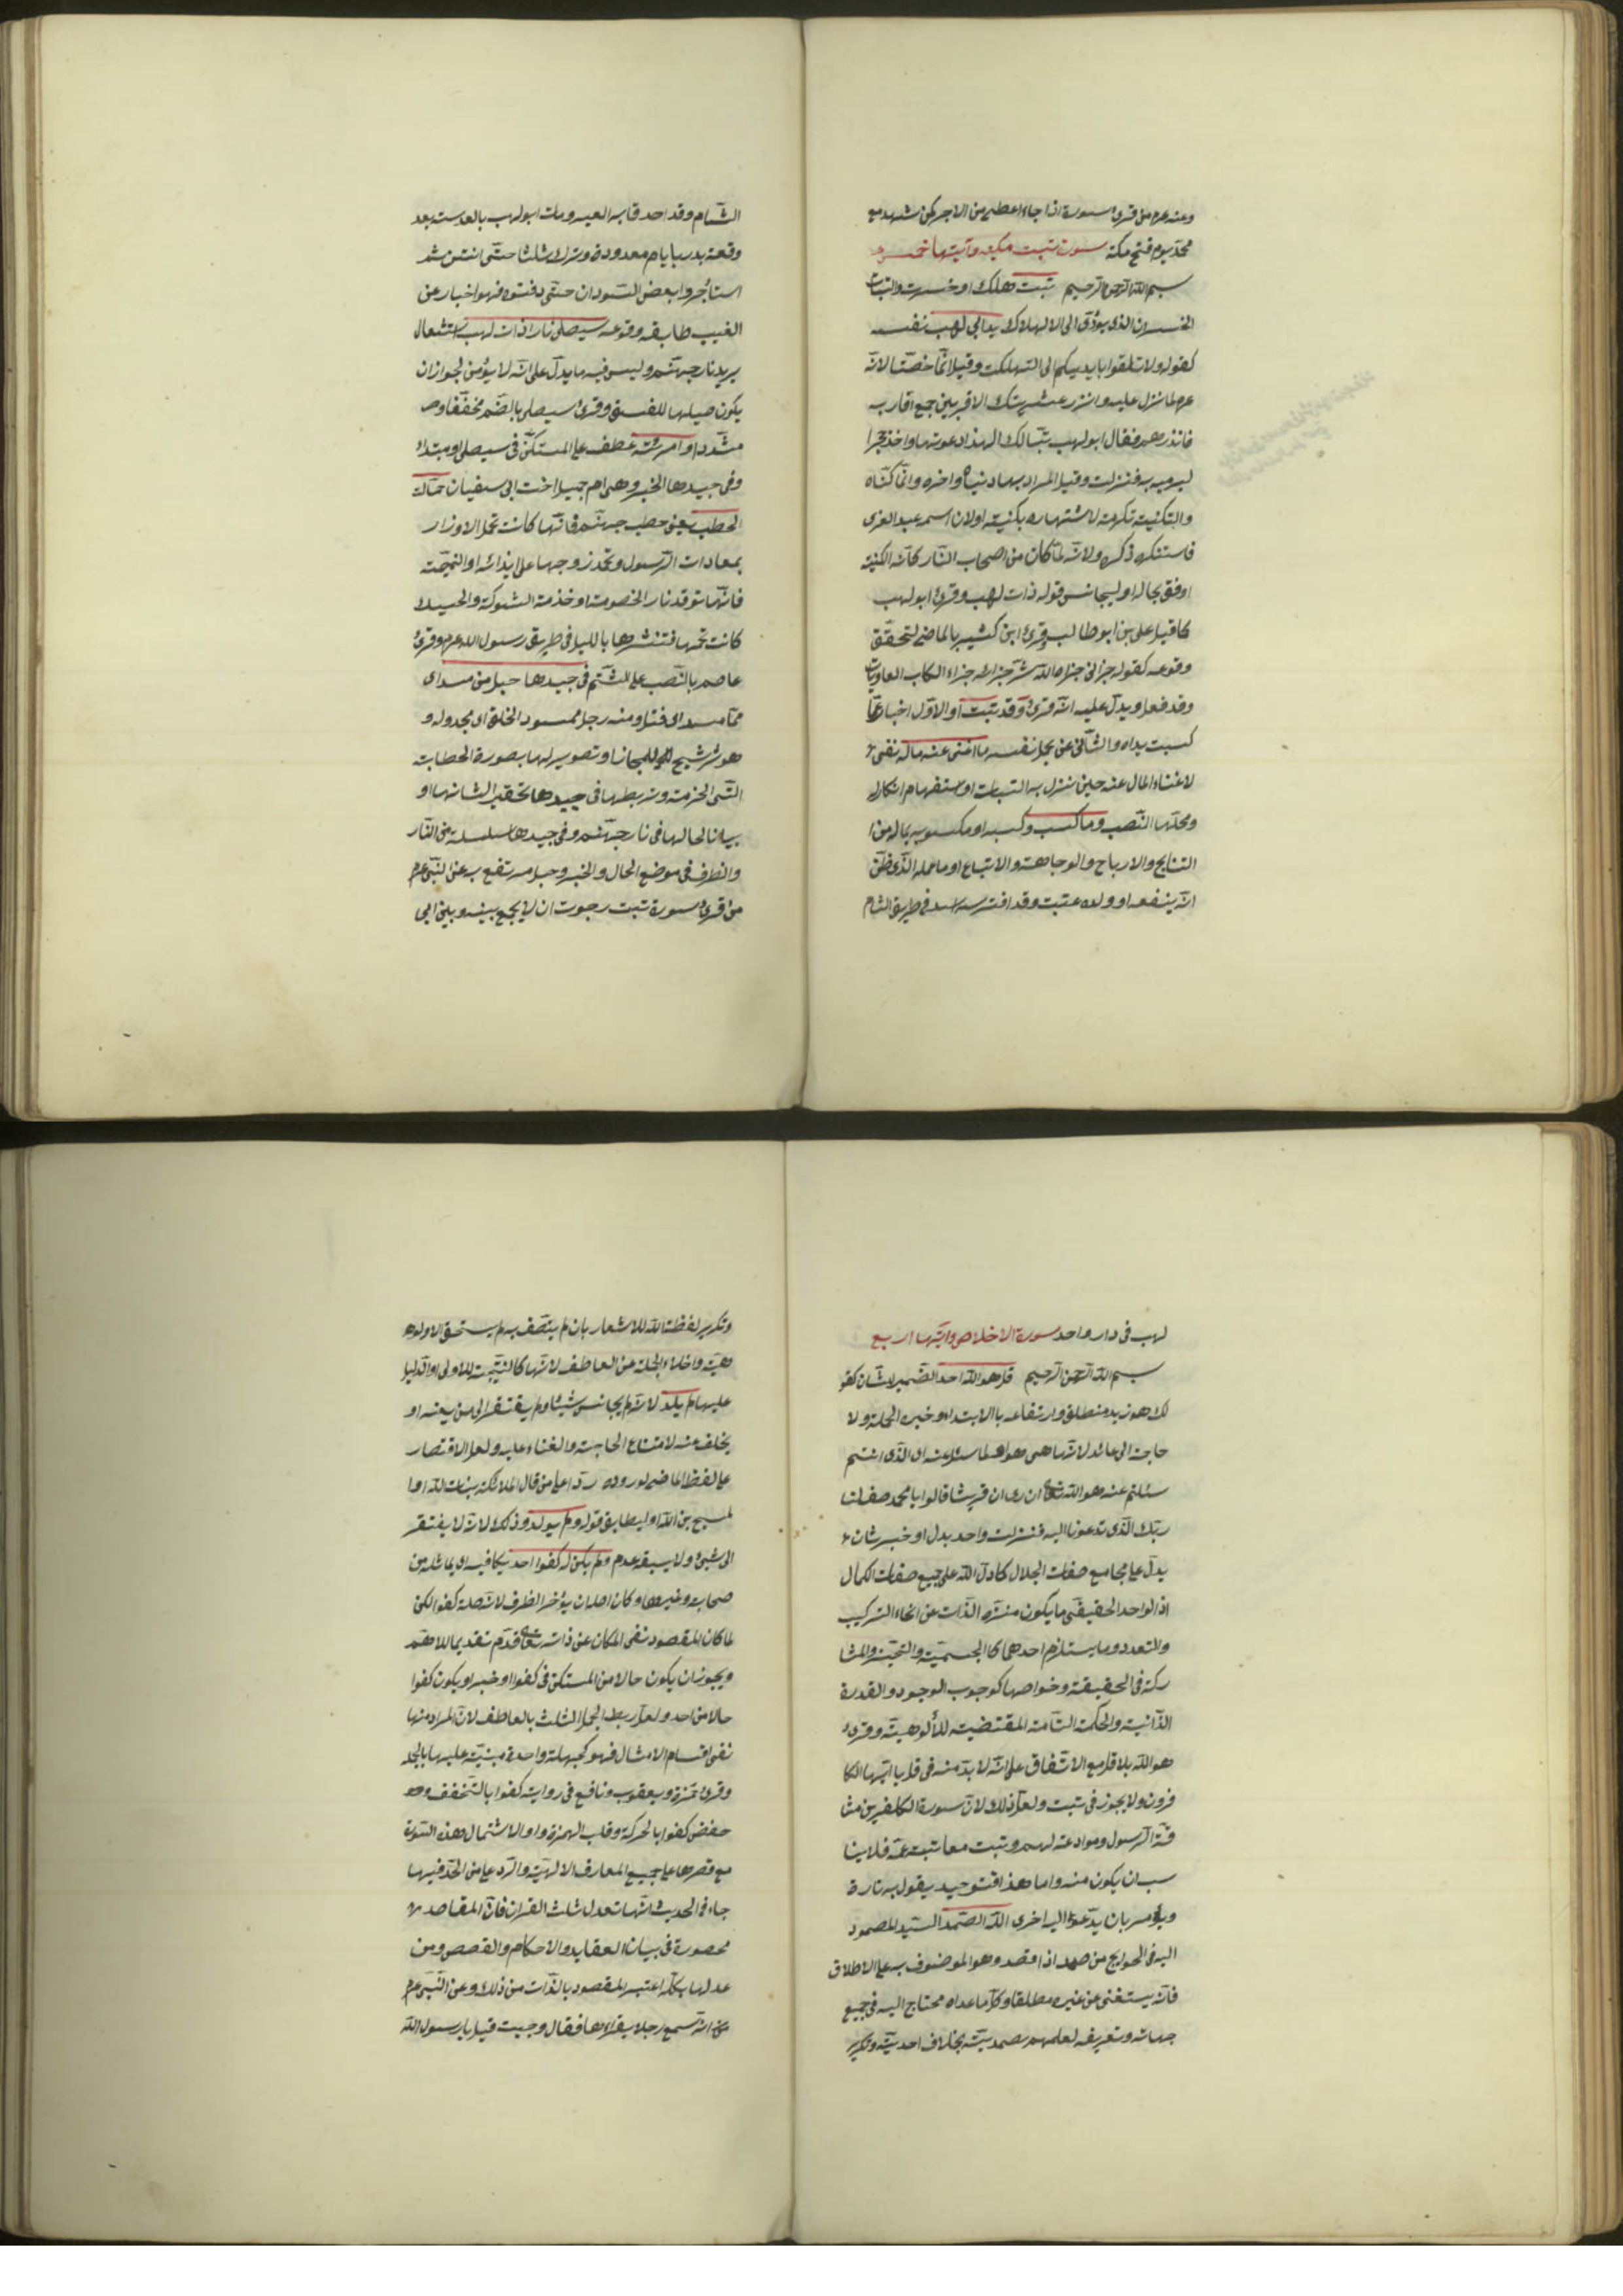 وعنه عم من قرئ سورة اذا جاء اعطى من الاجر كمن شهد مع
محمد يوم فتح مكة سورت تبت مكية وآيتها خمس
بسم الله الرحمن الرحيم تبت هلكت او خسرت والتباب
الخسران الذى يؤدى الى الهلاك يدا ابي لهب نفسه
كقوله ولا تلقوا بايديكم الى التهلكت وقيل انما خصتا لانه
عم لما نزل عليه وانذر عشيرتك الاقربين جمع اقاربه
فانذرهم فقال ابو لهب تبا لك الهذا دعوتنا واخذ حجرا
ليرميه به فنزلت وقيل المراد بهما دنياه واخره وانما كناه
والتكنية تكرمة لاشتهاره بكنيته او لان اسمه عبد العزى
فاستنكره ذكره ولانه لما كان من اصحاب النار كانت الكنية
اوفق بحاله او ليجانس قوله ذات لهب وقرئ ابو لهب
كما قيل على بن ابو طالب وقرئ ابن كثير بالماضى لتحقق
وقوعه كقوله جزانى جزاه الله شر جزائه جزاء الكلاب العاويات
وقد فعل ويدل عليه انه قرئ وقد تبت او الاول اخبار عما
كسبت يداه والثانى عن عمل نفسه ما اغنى عنه ماله نفى
لاغناء المال عنه حين نزل به التباب او استفهام انكار له
ومحلها النصب وما كسب وكسبه او مكسوبه بماله من
النتايج والارباح والوجاهة والاتباع او عمله الذى ظن
انه ينفعه او ولده عتبة وقد افترسه اسد فى طريق الشام
الشام وقد احدق به العير ومات ابو لهب بالعدسة بعد
وقعة بدر بايام معدودة وترك ثلثا حتى انتن ثم
استأجروا بعض السودان حتى دفنوه فهو اخبار عن
الغيب طابقه وقوعه سيصلى نارا ذات لهب اشتعال
يريد نار جهنم وليس فيه ما يدل على انه لا يؤمن لجواز ان
يكون صليها للفسق وقرئ سيصلى بالضم مخففا و
مشددا وامرأته عطف على المستكن فى سيصلى او مبتداء
وفى جيدها الخبر وهى ام جميل اخت ابى سفيان حمالة
الحطب يعنى حطب جهنم فانها كانت تحمل الاوزار
بمعادات الرسول وتحمل زوجها على ايذائه او النميمة
فانها توقد نار الخصومة او حزمة الشوكة والحسك
كانت تحملها فتنثرها بالليل فى طريق رسول الله عم وقرئ
عاصم بالنصب على الشتم فى جيدها حبل من مسد اى
مما مسد اى فتل ومنه رجل ممسود الخلق اى مجدوله و
هو ترشيح للمجاز او تصوير لها بصورة الحطابة
التى الحزمة وتربطها فى جيدها تحقيرا لشانها او
بيانا لحالها فى نار جهنم وفى جيدها سلسلة من النار
والظرف فى موضع الحال والخبر وحبل مرتفع به عن النبى عم
من قرئ سورة تبت رجوت ان لا يجمع بينه وبين ابى
لهب فى دار واحد سورة الاخلاص وايتها اربع
بسم الله الرحمن الرحيم قل هو الله احد الضمير للشان كقو
لك هو زيد منطلق وارتفاعه بالابتداء وخبره الجملة ولا
حاجة الى عائد لانها هى هو او لما سئل عنه اى الذى انتم
سئلتم عنه هو الله تعالى ان روى ان قريشا قالوا يا محمد صف لنا
ربك الذى تدعونا اليه فنزلت واحد بدل او خبر ثان
يدل على مجامع صفات الجلال كما دل الله على جميع صفات الكمال
اذ الواحد الحقيقى ما يكون منزه الذات عن انحاء التركيب
والتعدد وما يستلزم احدهما كالجسمية والتحيز والمشا
ركة فى الحقيقة وخواصها كوجوب الوجود والقدرة
الذاتية والحكمة التامة المقتضية للألوهية وقرئ
هو الله بلا قل مع الاتفاق على انه لا بد منه فى قل يا ايها الكا
فرون ولا يجوز فى تبت ولعل ذلك لان سورة الكافرين مشا
قة الرسول وموادعته لهم وتبت معاتبة عمه فلا ينا
سب ان يكون منه واما هذا فتوحيد يقول به تارة
ويؤمر بان يدعوا اليه اخرى الله الصمد السيد المصمود
اليه فى الحوايج من صمد اذا قصد وهو الموصوف به على الاطلاق
فانه يستغنى عن غيره مطلقا وكل ما عداه محتاج اليه فى جميع
جهاته وتعريفه لعلمهم بصمديته بخلاف احديته وتكرير
وتكرير لفظة الله للاشعار بان لم يتصف به لم يستحق الالو
هية واخلاء الجملة عن العاطف لانها كالنتيجة للاولى او الدليل
عليها لم يلد لانه لم يجانس شيئا ولم يفتقر الى من يعينه او
يخلف عنه لامتناع الحاجة والفناء عليه ولعل الاقتصار
على لفظ الماضى لوروده ردا على من قال الملائكة بنات الله او ا
لمسيح بن الله او ليطابق قوله ولم يولد وذلك لانه لا يفتقر
الى شئ ولا يسبقه عدم ولم يكن له كفوا احد يكافيه اى يماثله من
صاحبة وغيرها وكان اصله ان يؤخر الظرف لانه صلة كفوا لكن
لما كان المقصود نفى المكان عن ذاته تعالى قدم تقديما للاهم
ويجوز ان يكون حالا من المستكن فى كفوا او خبرا ويكون كفوا
حالا من احد ولعل ربط الجمل الثلث بالعاطف لان المراد منها
نفى اقسام الامثال فهو كجملة واحدة مبنية عليها بالجمل
وقرئ حمزة ويعقوب ونافع فى رواية كفوا بالتخفيف و
حفص كفوا بالحركة وقلب الهمزة واوا ولاشتمال هذه السورة
مع قصرها على جميع المعارف الالهية والرد على من الحد فيها
جاء فى الحديث انها تعدل ثلث القران فان المقاصد
محصورة فى بيان العقايد والاحكام والقصص ومن
عدلها بكله اعتبر المقصود بالذات من ذلك وعن النبى عم
انه سمع رجلا يقراءها فقال وجبت قيل يا رسول الله